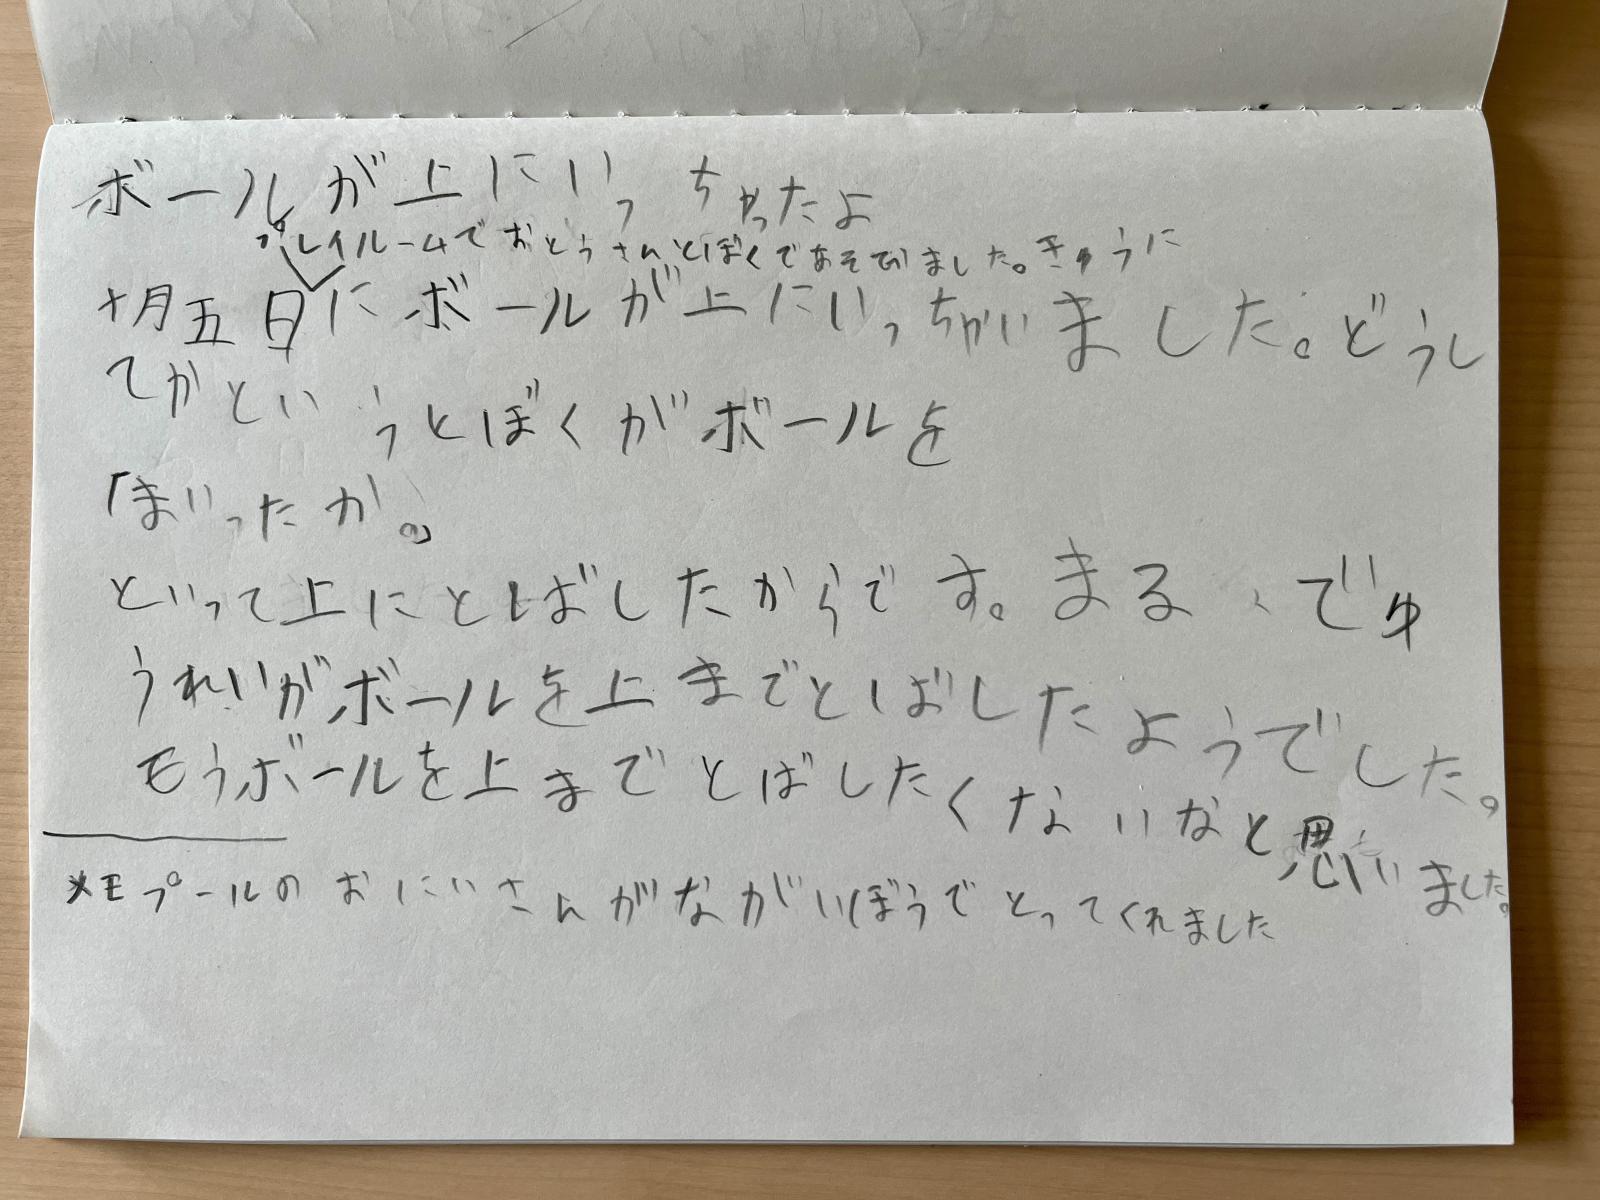 ボールが上にいっちゃったよ
プレイルームでおとうさんとぼくであそびました。きゅうに
十月五日にボールが上にいっちゃいました。どうし
てかというとぼくがボールを
「まいったか。」
といって上にとばしたからです。まるでゆ
うれいがボールを上までとばしたようでした。
もうボールを上までとばしたくないなと思いました。
メモプールのおにいさんがながいぼうでとってくれました